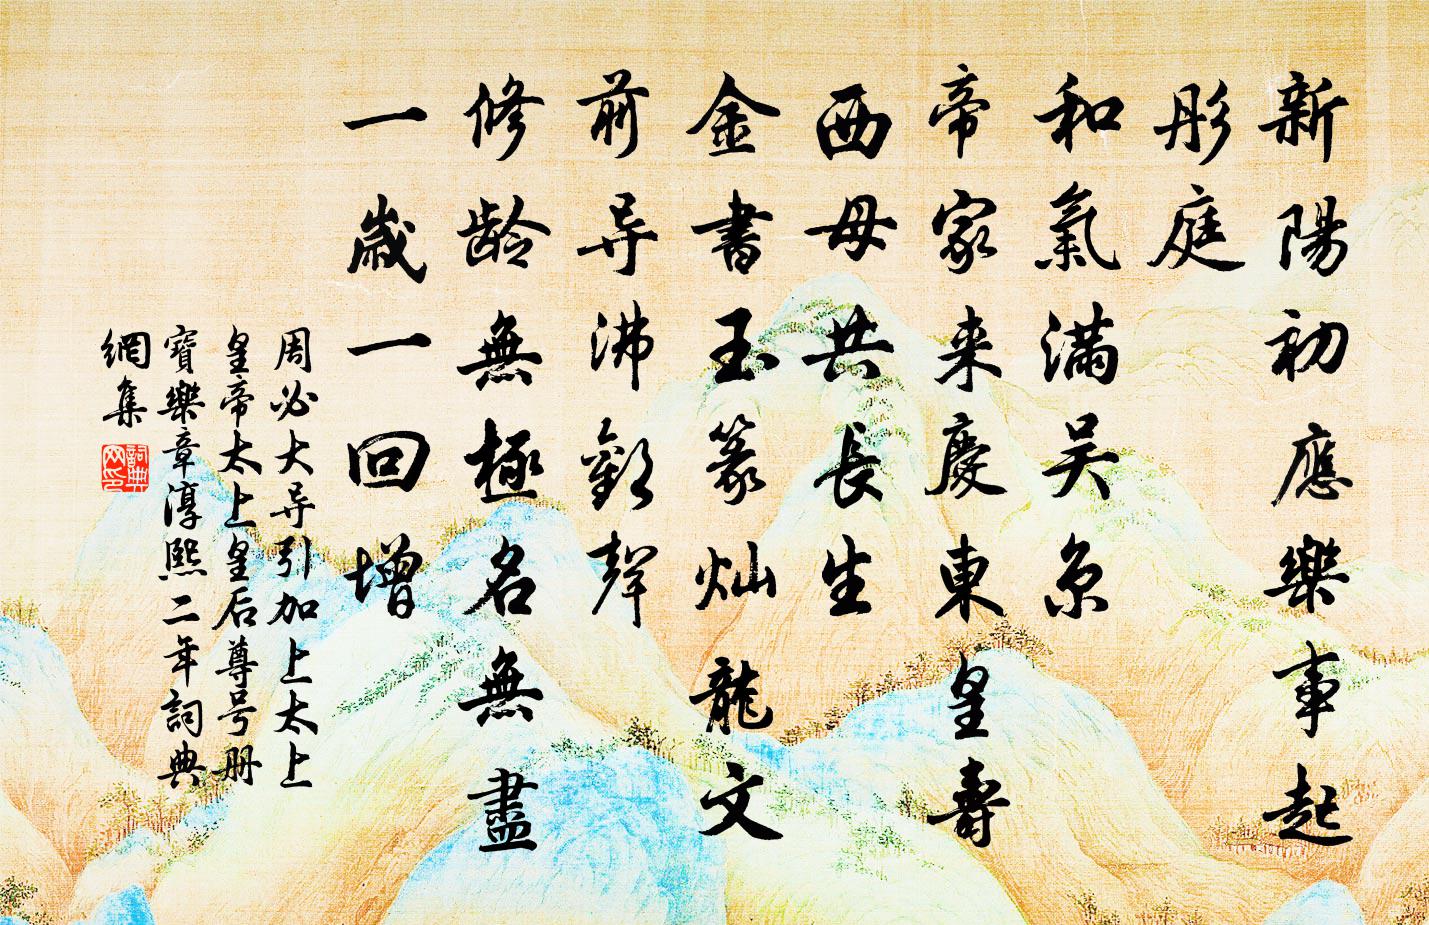 新陽初應樂事起
彤庭
和氣滿吴京
帝家来慶東皇壽
西母共長生
金書玉篆灿龍文
前导沸歡聲
修龄無極名無盡
一歲一回增
周必大导引加上太上
皇帝太上皇后尊号册
寶樂章淳熙二年詞典
網集
詞典網印